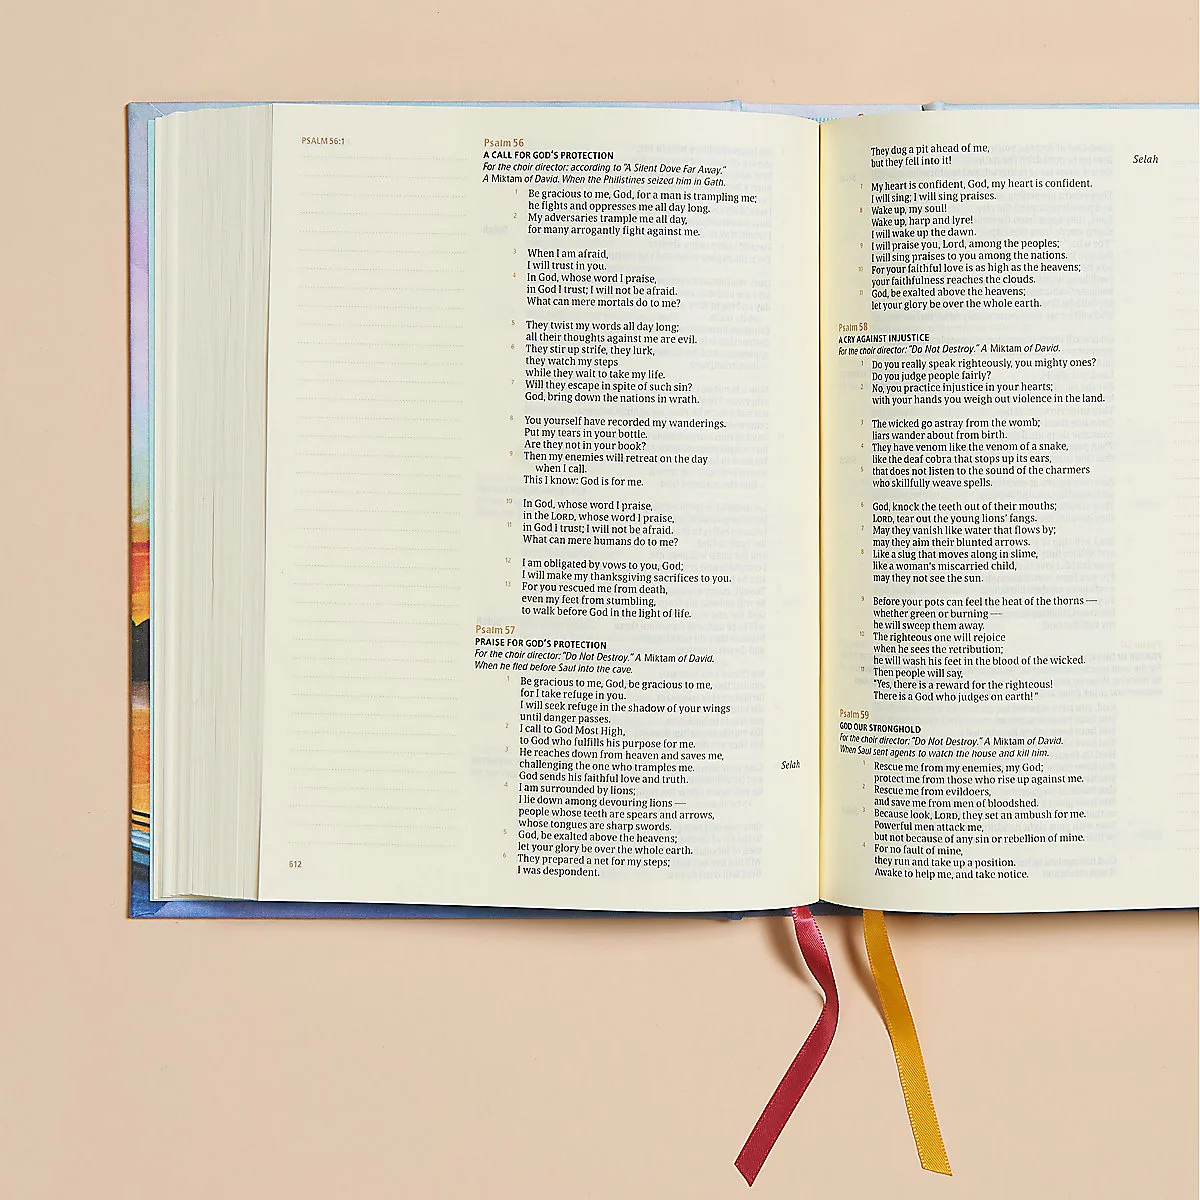 PSALM 56:1
Psalm 56
A CALL FOR GOD'S PROTECTION
For the choir director: according to "A Silent Dove Far Away."
A Miktam of David. When the Philistines seized him in Gath.
1 Be gracious to me, God, for a man is trampling me;
he fights and oppresses me all day long.
2 My adversaries trample me all day,
for many arrogantly fight against me.
3 When I am afraid,
I will trust in you.
4 In God, whose word I praise,
in God I trust; I will not be afraid.
What can mere mortals do to me?
5 They twist my words all day long;
all their thoughts against me are evil.
6 They stir up strife, they lurk,
they watch my steps
while they wait to take my life.
7 Will they escape in spite of such sin?
God, bring down the nations in wrath.
8 You yourself have recorded my wanderings.
Put my tears in your bottle.
Are they not in your book?
9 Then my enemies will retreat on the day
when I call.
This I know: God is for me.
10 In God, whose word I praise,
in the LORD, whose word I praise,
11 in God I trust; I will not be afraid.
What can mere humans do to me?
12 I am obligated by vows to you, God;
I will make my thanksgiving sacrifices to you.
13 For you rescued me from death,
even my feet from stumbling,
to walk before God in the light of life.
Psalm 57
PRAISE FOR GOD'S PROTECTION
For the choir director: "Do Not Destroy." A Miktam of David.
When he fled before Saul into the cave.
1 Be gracious to me, God, be gracious to me,
for I take refuge in you.
I will seek refuge in the shadow of your wings
until danger passes.
2 I call to God Most High,
to God who fulfills his purpose for me.
3 He reaches down from heaven and saves me,
challenging the one who tramples me. Selah
God sends his faithful love and truth.
4 I am surrounded by lions;
I lie down among devouring lions —
people whose teeth are spears and arrows,
whose tongues are sharp swords.
5 God, be exalted above the heavens;
let your glory be over the whole earth.
6 They prepared a net for my steps;
I was despondent.
612
They dug a pit ahead of me,
but they fell into it! Selah
7 My heart is confident, God, my heart is confident.
I will sing; I will sing praises.
8 Wake up, my soul!
Wake up, harp and lyre!
I will wake up the dawn.
9 I will praise you, Lord, among the peoples;
I will sing praises to you among the nations.
10 For your faithful love is as high as the heavens;
your faithfulness reaches the clouds.
11 God, be exalted above the heavens;
let your glory be over the whole earth.
Psalm 58
A CRY AGAINST INJUSTICE
For the choir director: "Do Not Destroy." A Miktam of David.
1 Do you really speak righteously, you mighty ones?
Do you judge people fairly?
2 No, you practice injustice in your hearts;
with your hands you weigh out violence in the land.
3 The wicked go astray from the womb;
liars wander about from birth.
4 They have venom like the venom of a snake,
like the deaf cobra that stops up its ears,
5 that does not listen to the sound of the charmers
who skillfully weave spells.
6 God, knock the teeth out of their mouths;
LORD, tear out the young lions' fangs.
7 May they vanish like water that flows by;
may they aim their blunted arrows.
8 Like a slug that moves along in slime,
like a woman's miscarried child,
may they not see the sun.
9 Before your pots can feel the heat of the thorns —
whether green or burning —
he will sweep them away.
10 The righteous one will rejoice
when he sees the retribution;
he will wash his feet in the blood of the wicked.
11 Then people will say,
"Yes, there is a reward for the righteous!
There is a God who judges on earth!"
Psalm 59
GOD OUR STRONGHOLD
For the choir director: "Do Not Destroy." A Miktam of David.
When Saul sent agents to watch the house and kill him.
1 Rescue me from my enemies, my God;
protect me from those who rise up against me.
2 Rescue me from evildoers,
and save me from men of bloodshed.
3 Because look, LORD, they set an ambush for me.
Powerful men attack me,
but not because of any sin or rebellion of mine.
4 For no fault of mine,
they run and take up a position.
Awake to help me, and take notice.